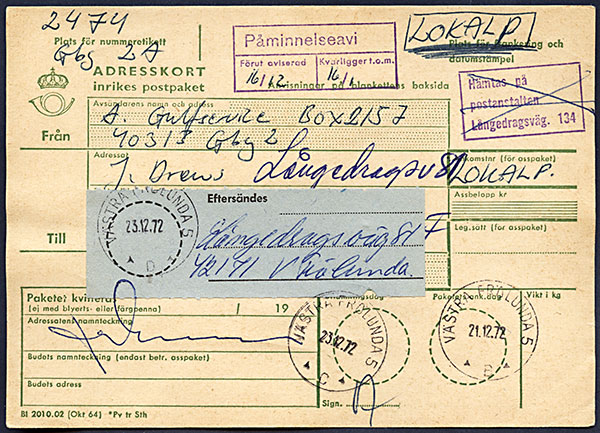 2474
Plats för nummeretikett
Gbg 2A
ADRESSKORT
inrikes postpaket
Påminnelseavi
Förut aviserad
16/12
Kvarligger t.o.m.
16/1
Anvisningar på blankettens baksida
LOKALP
Plats för frankering och
datumstämpel
Hämtas på
postanstalten
Långedragsväg. 134
Avsändarens namn och adress
Från
A. Gulfservice Box 2157
40313 Gbg 2
Adressat
J. Drews Långedragsv 81
Till
Eftersändes
Långedragsväg 81 F
42171 V Frölunda.
VÄSTRA FRÖLUNDA 5
23.12.72
D
komstnr (för asspaket)
LOKALP.
Assbelopp kr
Leg.sätt (för asspaket)
Paketet kvitteras
(ej med blyerts- eller färgpenna)
/ 19
Adressatens namnteckning
Budets namnteckning (endast betr. asspaket)
Budets adress
VÄSTRA FRÖLUNDA 5
23.12.72
C
Sign.
Paketets ank.dag
Vikt i kg
VÄSTRA FRÖLUNDA 5
21.12.72
B
Bl 2010.02 (Okt 64) *Pv tr Sth